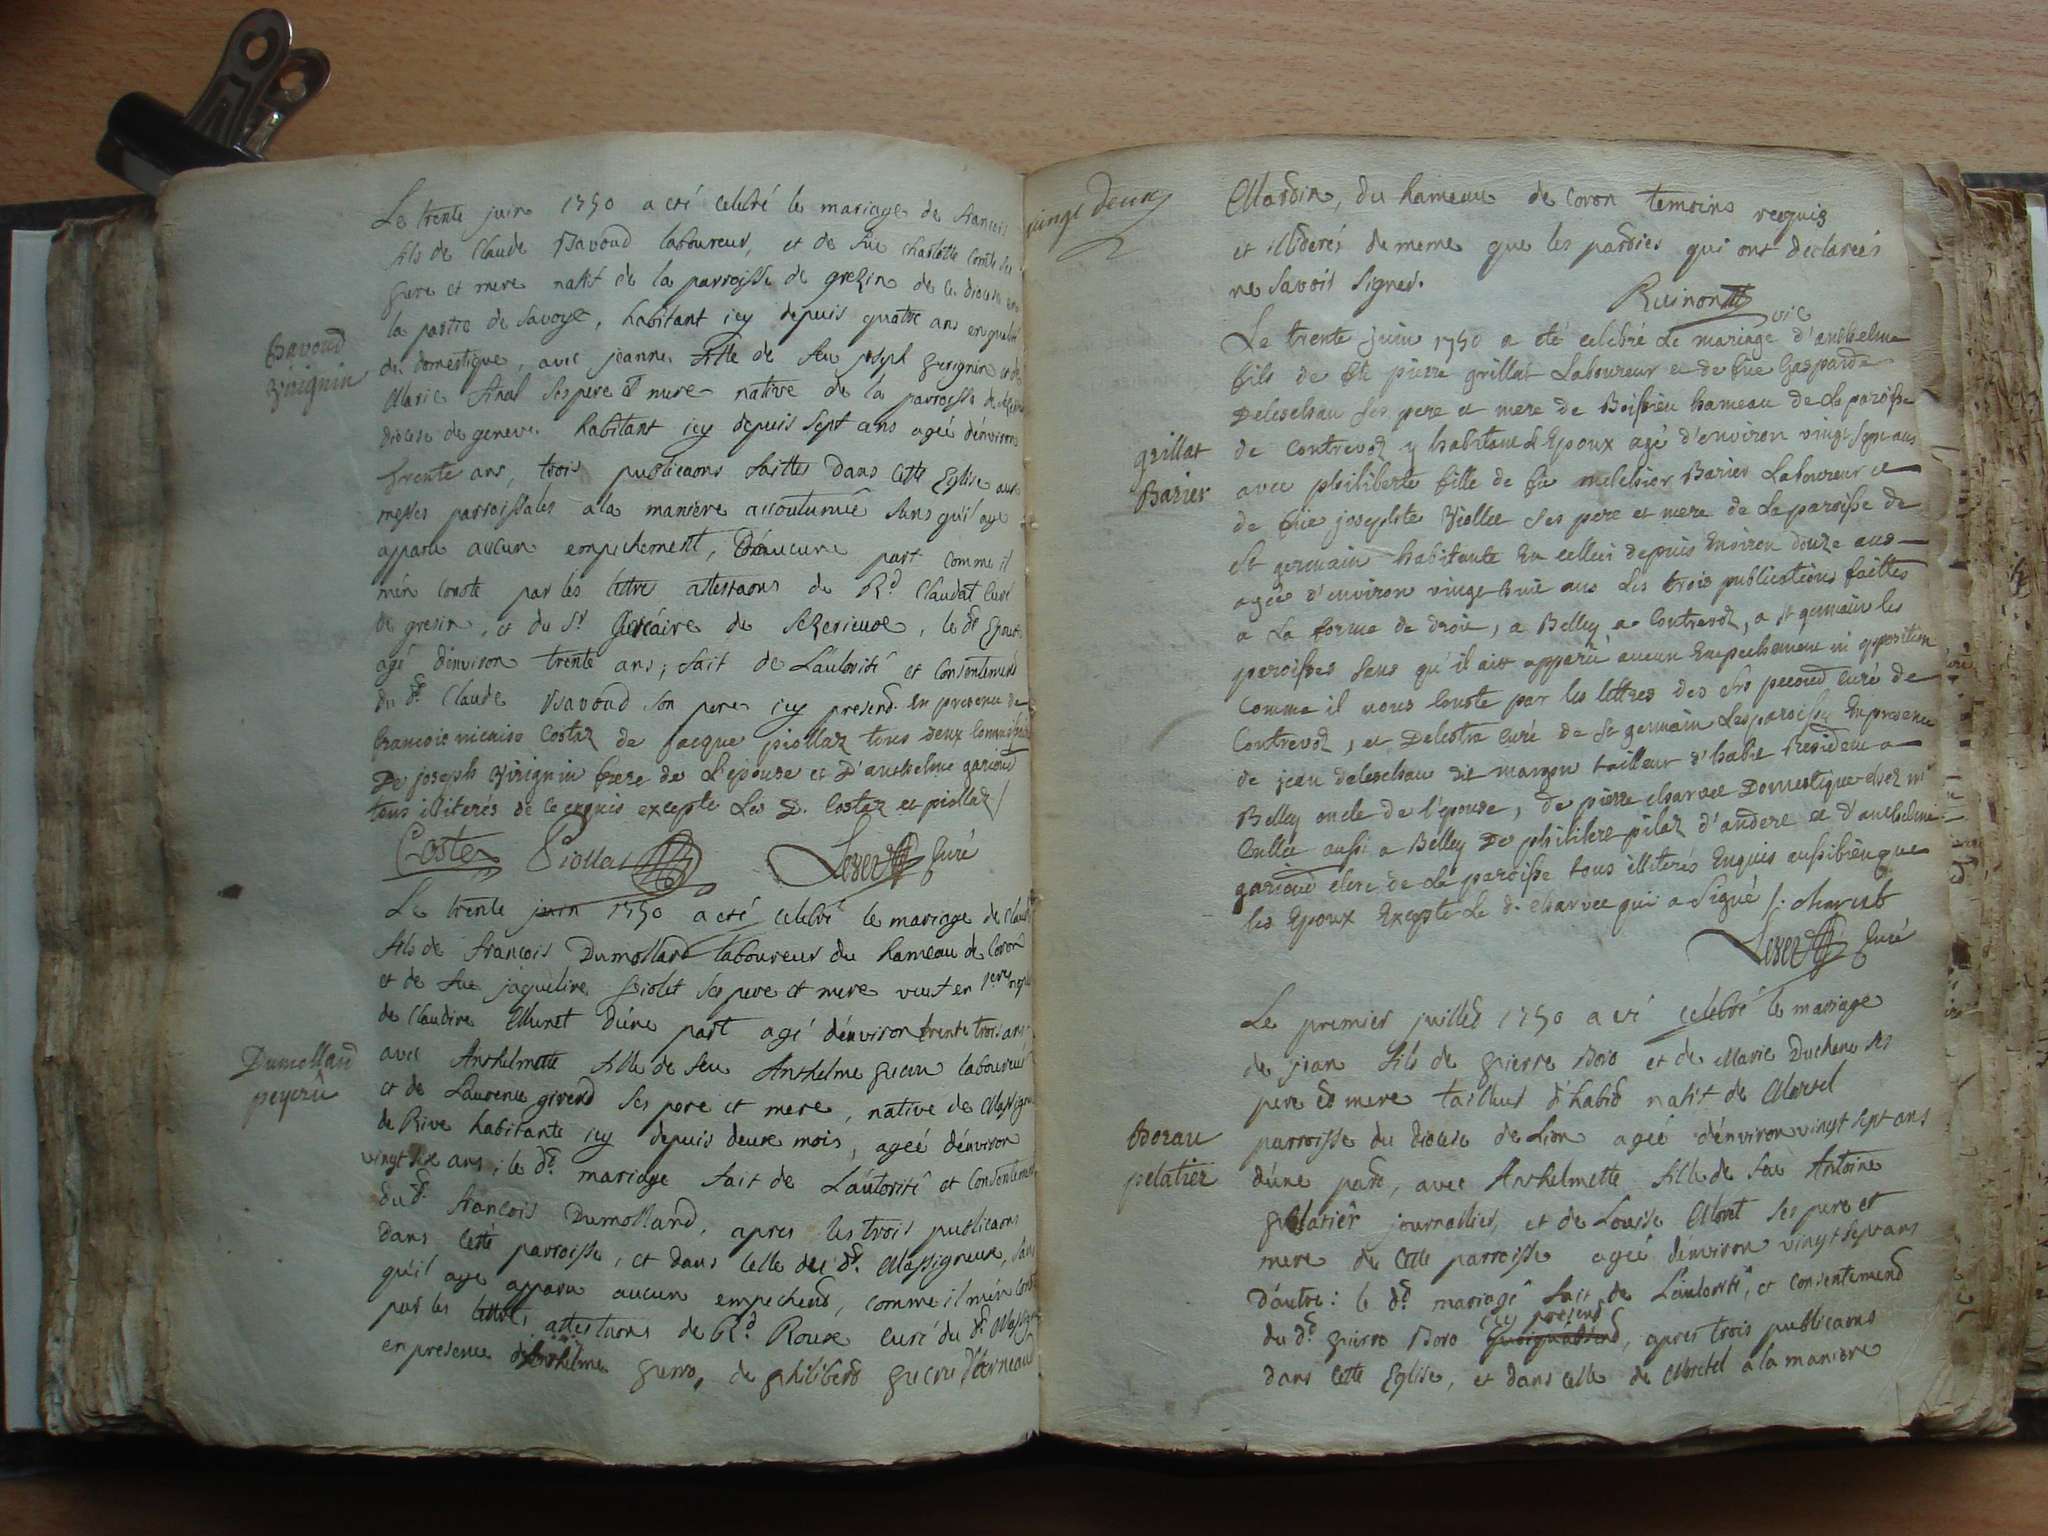 Le trente juin 1750 a eté celebré le mariage de francois
fils de Claude Bavoud laboureur, et de fue charlotte Comte ses
pere et mere natif de la parroisse de grezin de ce diocese
la partie de Savoye, habitant icy depuis quatre ans en qualité
Bavoud
Virignin
de domestique, avec jeanne fille de feu joseph et de
Marie ses pere et mere native de la parroisse de
diocese de geneve habitant icy depuis sept ans ageé d'environ
trente ans, trois publicaons faittes dans cette Eglise aux
messes parroissiales a la maniere accoutumée sans qu'il aye
apparu aucun empechement, d'aucune part comme il
m'en conste par les lettre attestaons de Rd Claudat Curé
de gresin, et du Sr de , le dt Epoux
agé d'environ trente ans; fait de L'autorité et Consentement
du dt Claude Bavoud son pere icy present. En presence de
francois nicaise Costaz de jacque piollaz tous deux
De joseph Virignin frere de L'epouse et D'anthelme garioud
tous illiterés de ce enquis excepté Les D. Costaz et piollaz /
Costaz Piollaz Curé
Le trente juin 1750 a eté celebré le mariage de Claude
fils de francois Dumolland laboureur du hameau de Coron
et de fue jaqueline Violet ses pere et mere veuf en
de Claudine Munet d'une part agé d'environ trente trois ans,
Dumolland
peycru
avec Anthelmette fille de feu Anthelme laboureur
et de Laurence girerd ses pere et mere, native de
de Rive habitante icy depuis deux mois, ageé d'environ
vingt six ans; le dt mariage fait de L'autorité et Consentement
du dt francois Dumolland, apres les trois publicaons
dans cette parroisse, et dans celle du dt Massigneux, sans
qu'il aye apparu aucun empechent, comme il m'en conste
par les lettres attestaons de Rd Roux curé du dt
en presence d'Anthelme de philibert
vingt deux
Mardin, du hameau de Coron temoins requis
et illiderés de meme que les parties qui ont declareés
ne savoir signer.
Ruinon vic
Le trente juin 1750 a été celebré Le mariage d'anthelme
fils de fu pierre grillat Laboureur et de fue Gasparde
Deleschau ses pere et mere de Boissieu hameau de La paroisse
grillat
Barier
de Contrevoz y habitant L'Epoux agé d'environ vingt sept ans
avec philiberte fille de fu melchior Barier Laboureur et
de fue josephte Viollet ses pere et mere de La paroisse de
St germain habitante En celleci depuis Environ douze ans
agée d'environ vingt huit ans Les trois publications faittes
a La forme de droit, a Belley, a Contrevoz, a St germain les
paroisses sans qu'il ait apparu aucun Empechement ni opposition
Comme il nous Conste par les lettres des Srs Curé de
Contrevoz, et Delestra curé de St germain Les paroisses En presence
de jean deleschau dit margon tailleur d'habit Resident a
Belley oncle de l'épouse, de pierre charvet Domestique chez mr
Cullet aussi a Belley De philibert pilaz d'andert et d'anthelme
garioud clerc de La paroisse tous illiterés Enquis aussi bien que
les Epoux Excepté Le d. charvet qui a signé /. charvet
Curé
Le premier juillet 1750 a eté celebré le mariage
de jean fils de pierre Boro et de Marie Duchene ses
pere et mere tailleur d'habit natif de Mortel
Borau
pelatier
parroisse du diocese de Lion ageé d'environ vingt sept ans
d'une part, avec Anthelmette fille de feu Antoine
pelatier journallier, et de Louise Moret ses pere et
mere de Cette parroisse ageé d'environ vingt sept ans
d'autre: le dt mariage fait de L'autorité, et consentement
du dt pierro Boro icy present, apres trois publicaons
dans cette Eglise, et dans celle de Mortel a la maniere